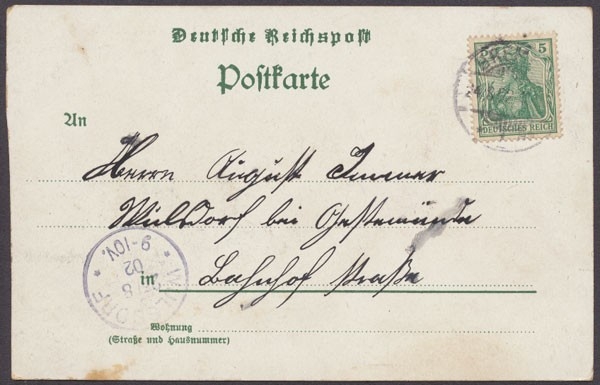 Deutsche Reichspost
Postkarte
5
DEUTSCHES REICH
An
Herrn August Immer
Wulsdorf bei Gestemünde
in Bahnhof straße
WULSDORF
8
02
9-10V.
Wohnung
(Straße und Hausnummer)